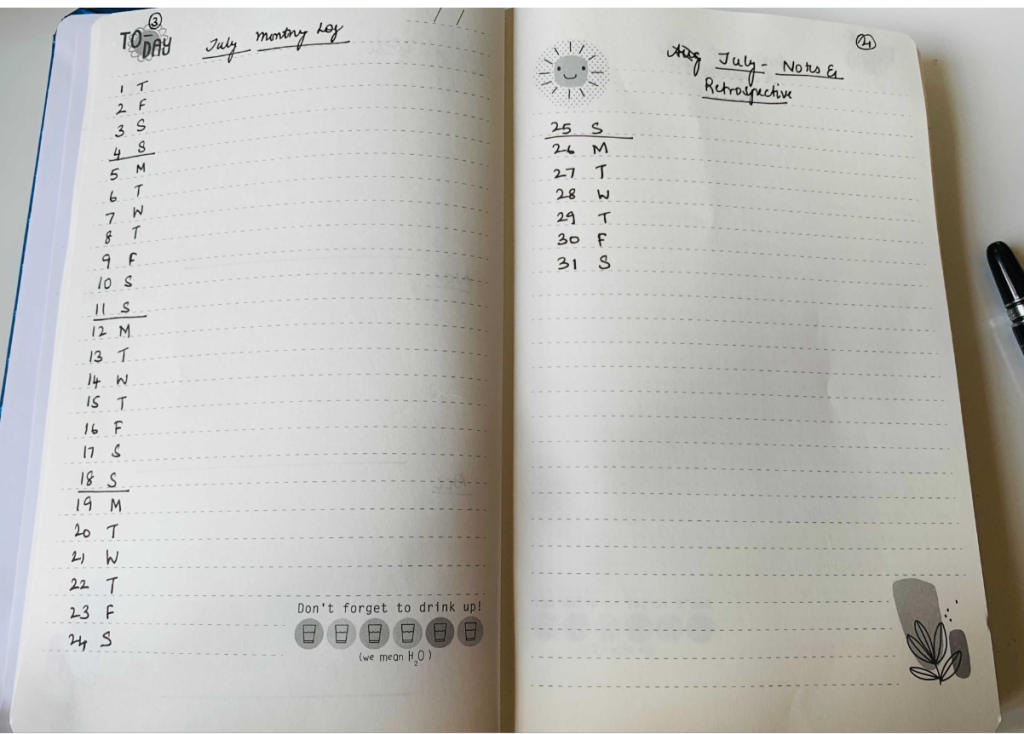 3
TO-DAY
July Monthly Log
1 T
2 F
3 S
4 S
5 M
6 T
7 W
8 T
9 F
10 S
11 S
12 M
13 T
14 W
15 T
16 F
17 S
18 S
19 M
20 T
21 W
22 T
23 F
24 S
Don't forget to drink up!
(we mean H₂O)
4
Aug July - Notes &
Retrospective
25 S
26 M
27 T
28 W
29 T
30 F
31 S